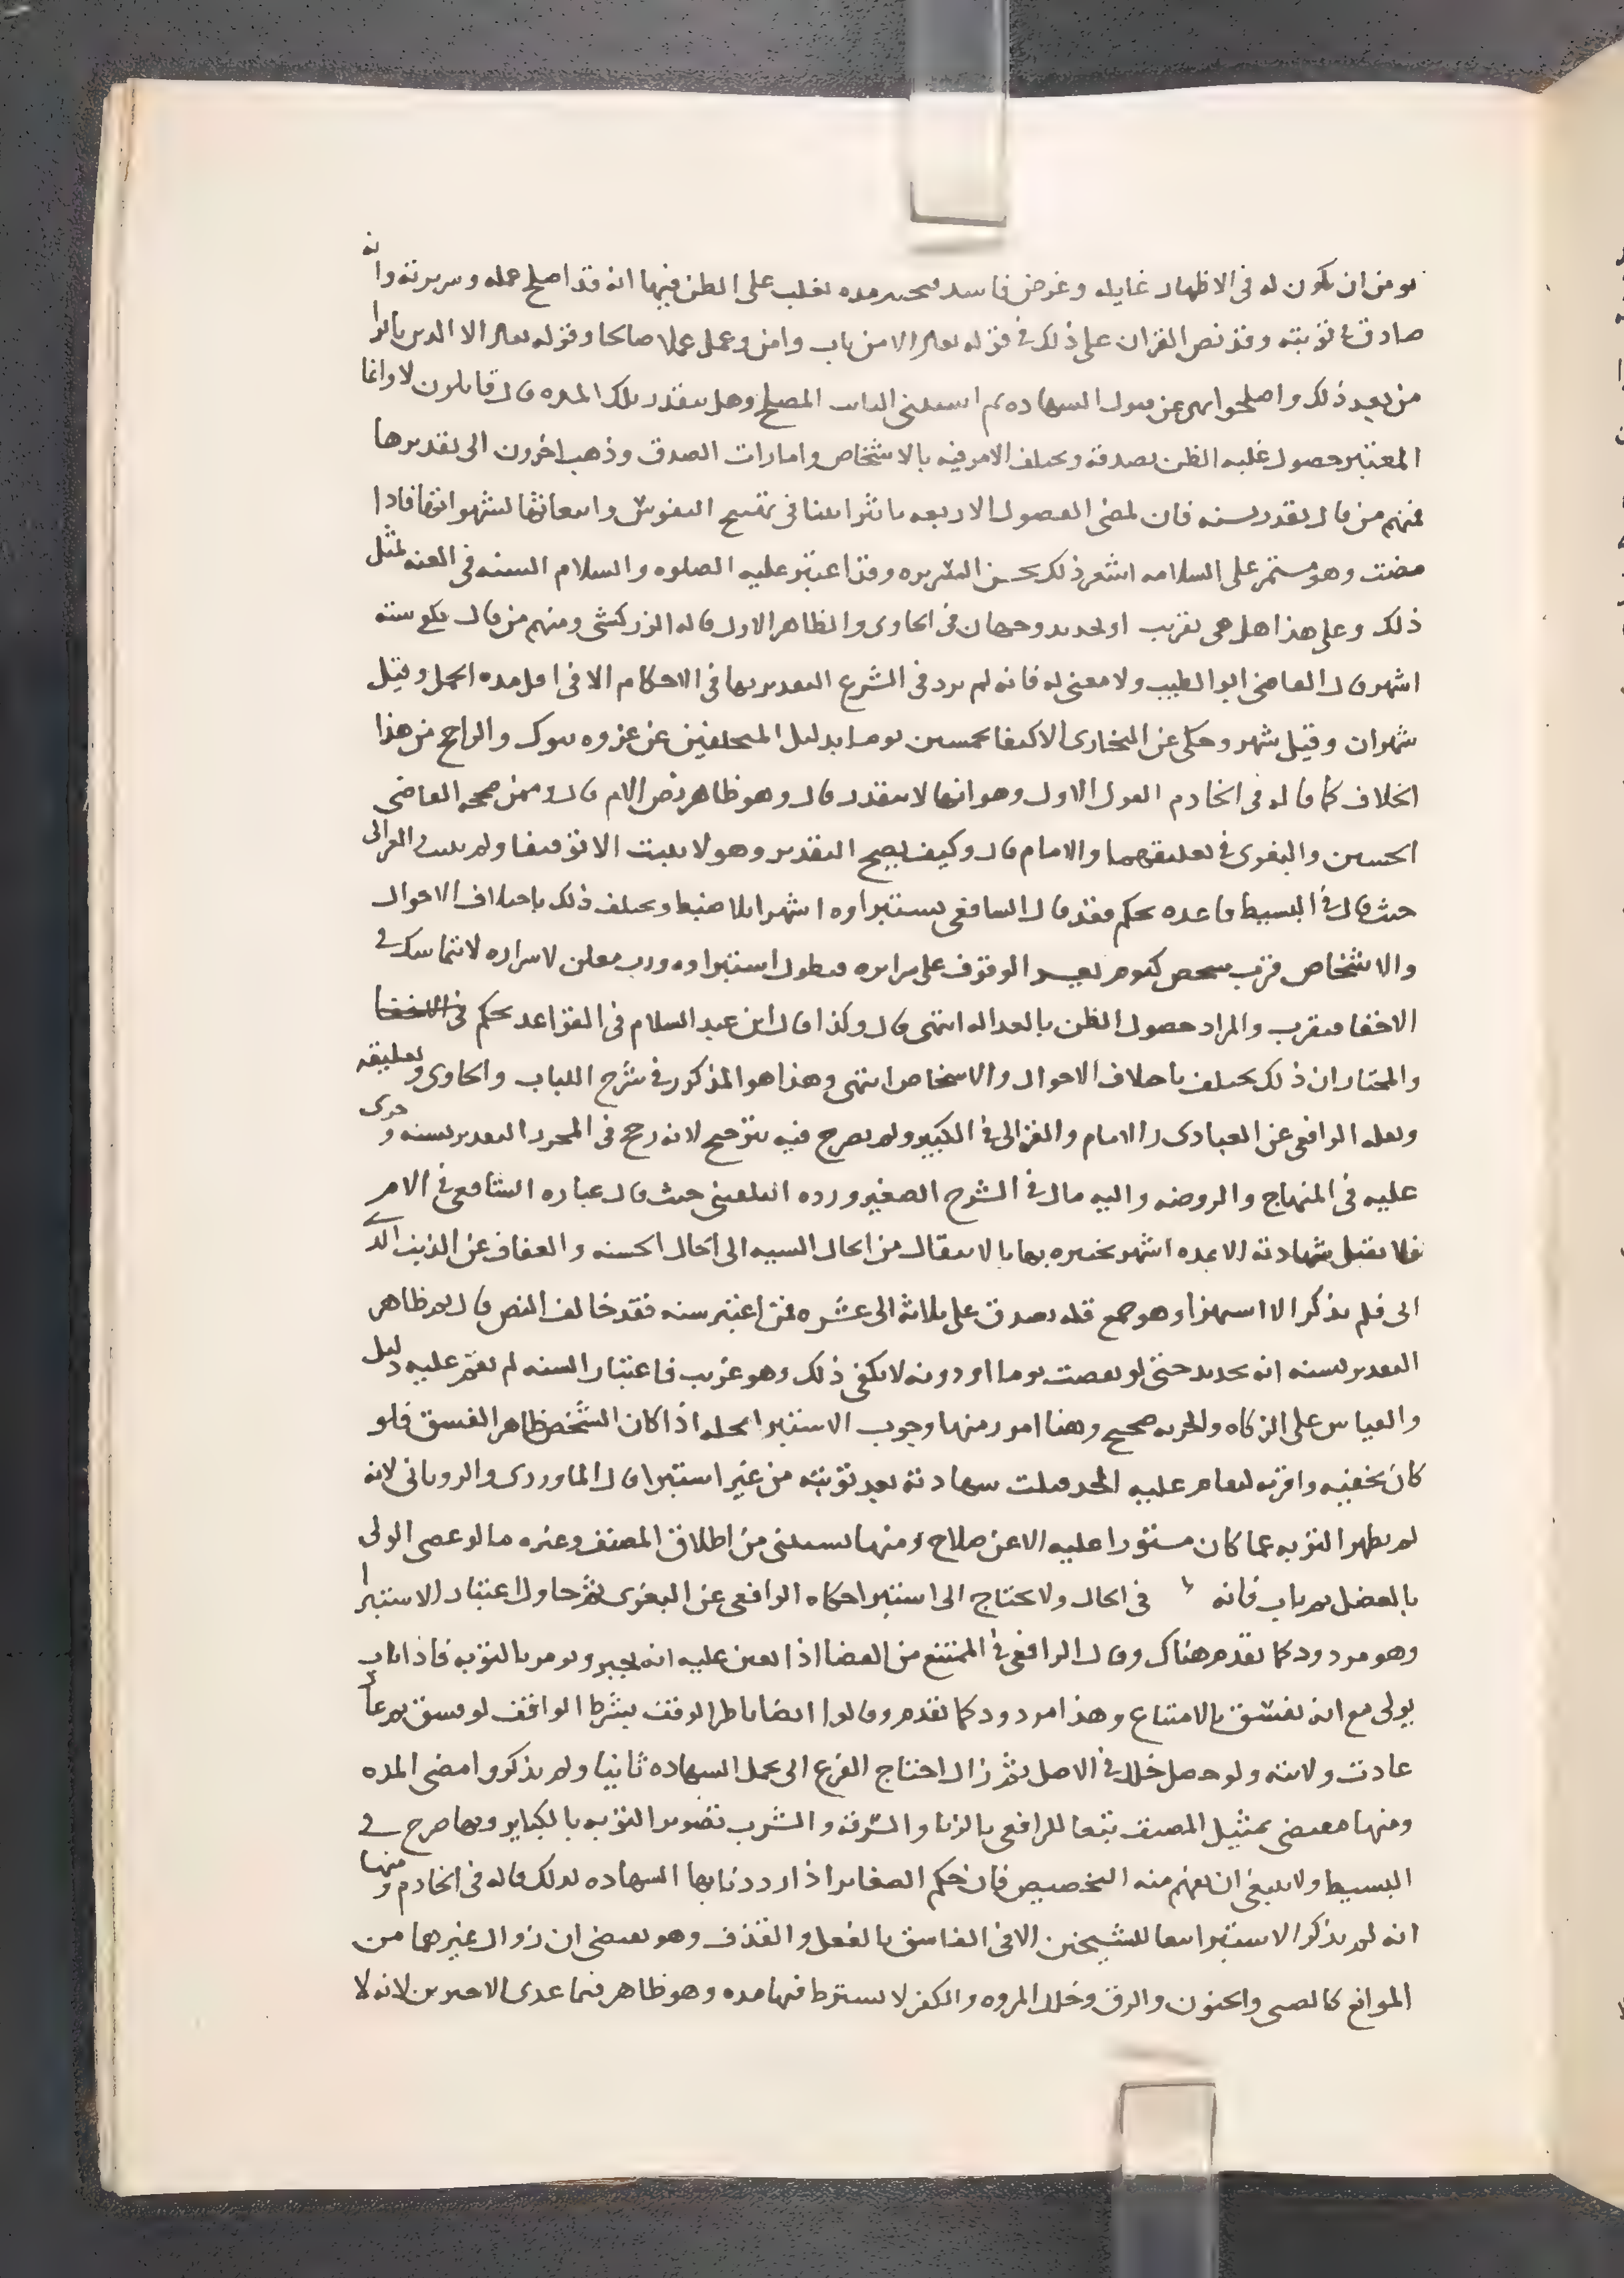 يومن ان يكون له فى الاظهار غايله وغرض فاسد فيختبر مده يغلب على الظن فيها انه قد اصلح عمله وسريرته وانه
صادق فى توبته وقد نص القران على ذلك فى قوله تعالى الا من تاب وامن وعمل عملا صالحا وقوله تعالى الا الذين تابوا
من بعد ذلك واصلحوا نهى عن قبول الشهاده ثم استثنى التايب المصلح وهل تتقدر تلك المده قال قايلون لا وانما
المعتبر حصول غلبه الظن بصدقه ويختلف الامر فيه بالاشخاص وامارات الصدق وذهب اخرون الى تقديرها
فمنهم من قال تقدر بسنه فان لمضى الفصول الاربعه تاثيرا بينا فى تهييج النفوس وانبعاثها لشهواتها فاذا
مضت وهو مستمر على السلامه اشعر ذلك بحسن السريره وقد اعتبر عليه الصلوه والسلام السنه فى العنه لمثل
ذلك وعلى هذا هل هى تقريب او تحديد وجهان فى الحاوى والظاهر الاول قاله الزركشى ومنهم من قال يكفى سته
اشهر قال القاضى ابو الطيب ولا معنى له فانه لم يرد فى الشرع التقدير بها فى الاحكام الا فى اقل مده الحمل وقيل
شهران وقيل شهر وحكى عن البخارى الاكتفا بخمسين يوما بدليل المتخلفين عن غزوه تبوك والراجح من هذا
الخلاف كما قاله فى الخادم القول الاول وهو انها لا تتقدر قال وهو ظاهر نص الام قال وممن صححه القاضى
الحسين والبغوى فى تعليقهما والامام قال وكيف يصح التقدير وهو لا يثبت الا توقيفا ولم يثبت الغزالى
حيث قال فى البسيط قاعده تحكم فقد قال الشافعى يستبراوه اشهرا بلا ضبط ويختلف ذلك باختلاف الاحوال
والاشخاص فرب شخص كتوم يعسر الوقوف على سرايره فيطول استبراوه ورب معلن لاسراره لا يتماسك فى
الاخفا فيقرب والمراد حصول الظن بالعداله انتهى قال وكذا قال ابن عبد السلام فى القواعد تحكم فى
والمختار ان ذلك يختلف باختلاف الاحوال والاشخاص انتهى وهذا هو المذكور فى شرح اللباب والحاوى وتعليقه
ونقله الرافعى عن العبادى والامام والغزالى فى الكبير ولم يصرح فيه بترجيح لانه رجح فى المحرر التقدير بسنه وجرى
عليه فى المنهاج والروضه واليه مال فى الشرح الصغير ورده البلقينى حيث قال عباره الشافعى فى الام
فلا تقبل شهادته الا بمده اشهر يختبره بها بالانتقال من الحال السيه الى الحال الحسنه والعفاف عن الذنب الذى
اتى فلم يذكر الا اشهرا وهو جمع قله يصدق على ثلاثه الى عشره فمن اعتبر سنه فقد خالف النص قال ثم ظاهر
التقدير بسنه انه تحديد حتى لو نقصت يوما او دونه لا يكفى ذلك وهو غريب فاعتبار السنه لم يقم عليه دليل
والقياس على الزكاه والجزيه صحيح وهنا امور منها وجوب الاستبرا محله اذا كان الشخص ظاهر الفسق فلو
كان يخفيه واقر به ليقام عليه الحد قبلت شهادته بعد توبته من غير استبرا قال الماوردى والرويانى لانه
لم يظهر التوبه عما كان مستورا عليه الا عن صلاح ومنها يستثنى من اطلاق المصنف وغيره ما لو عصى الولى
بالعضل ثم تاب فانه فى الحال ولا يحتاج الى استبرا حكاه الرافعى عن البغوى ثم حاول اعتبار الاستبرا
وهو مردود كما تقدم هناك وقال الرافعى فى الممتنع من القضا اذا تعين عليه انه يجبر ويومر بالتوبه فاذا تاب
يولى مع انه يفسق بالامتناع وهذا مردود كما تقدم وقالوا ايضا ناظر الوقف بشرط الواقف لو فسق ثم عاد
عادت ولايته ولو حصل خلل فى الاصل ثم زال احتاج الفرع الى تحمل الشهاده ثانيا ولم يذكروا مضى المده
ومنها مقتضى تمثيل المصنف تبعا للرافعى بالزنا والسرقه والشرب تصوير التوبه بالكباير وبها صرح فى
البسيط ولا ينبغى ان يفهم منه التخصيص فان حكم الصغاير اذا رددنا بها الشهاده لذلك قاله فى الخادم ومنها
انه لم يذكر الاستبرا تبعا للشيخين الا فى الفاسق بالفعل والقذف وهو يقتضى ان زوال غيرهما من
الموانع كالصبى والجنون والرق وخلل المروه والكفر لا يشترط فيها مده وهو ظاهر فيما عدى الاخيرين لانه لا